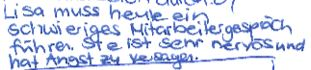 Lisa muss heute ein
schwieriges Mitarbeitergespräch
führen. Sie ist sehr nervös und
hat Angst zu versagen.